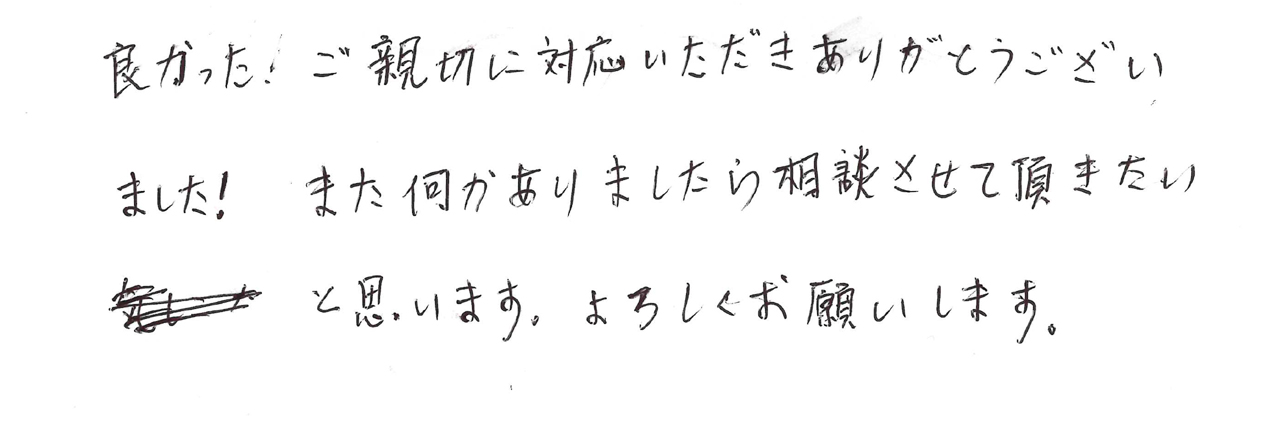 良かった! ご親切に対応いただきありがとうござい
ました! また何かありましたら相談させて頂きたい
と思います。よろしくお願いします。